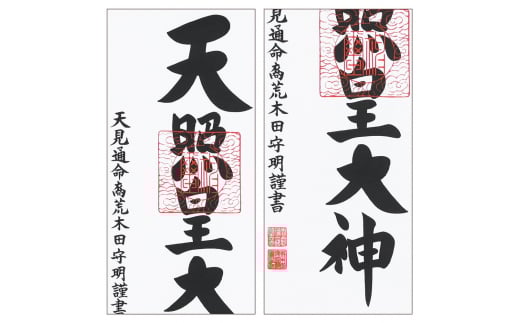 天照皇大
天見通命裔荒木田守明謹書
照皇大神
見通命裔荒木田守明謹書